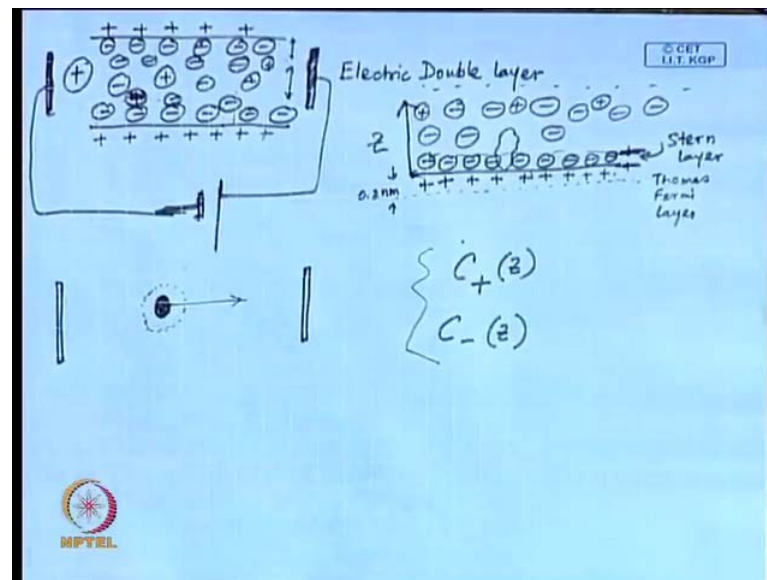 © CET
I.I.T. KGP
Electric Double layer
Z
0.2nm
Stern
layer
Thomas
Fermi
layer
C+(z)
C-(z)
NPTEL